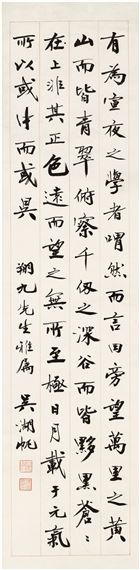 有為宣夜之學者喟然而言曰旁望萬里之黃
山而皆青翠俯察千仞之深谷而皆黝黑蒼〻
在上非其正色遠而望之無所至極日月載于元氣
所以或中而或異
翔九先生雅屬 吳湖帆